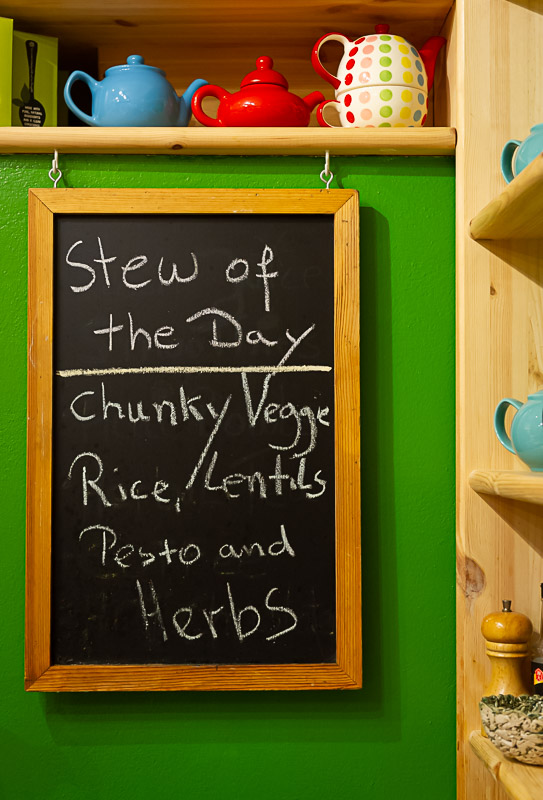 Stew of
the Day
Chunky Veggie
Rice, Lentils
Pesto and
Herbs